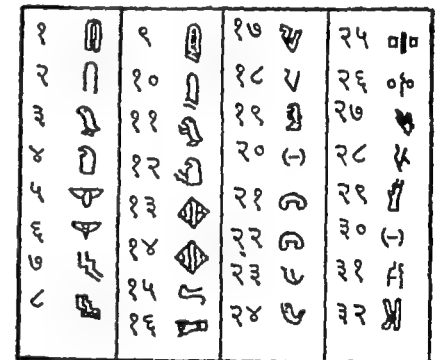 १
२
३
४
५
६
७
८
९
१०
११
१२
१३
१४
१५
१६
१७
१८
१९
२०
२१
२२
२३
२४
२५
२६
२७
२८
२९
३०
३१
३२